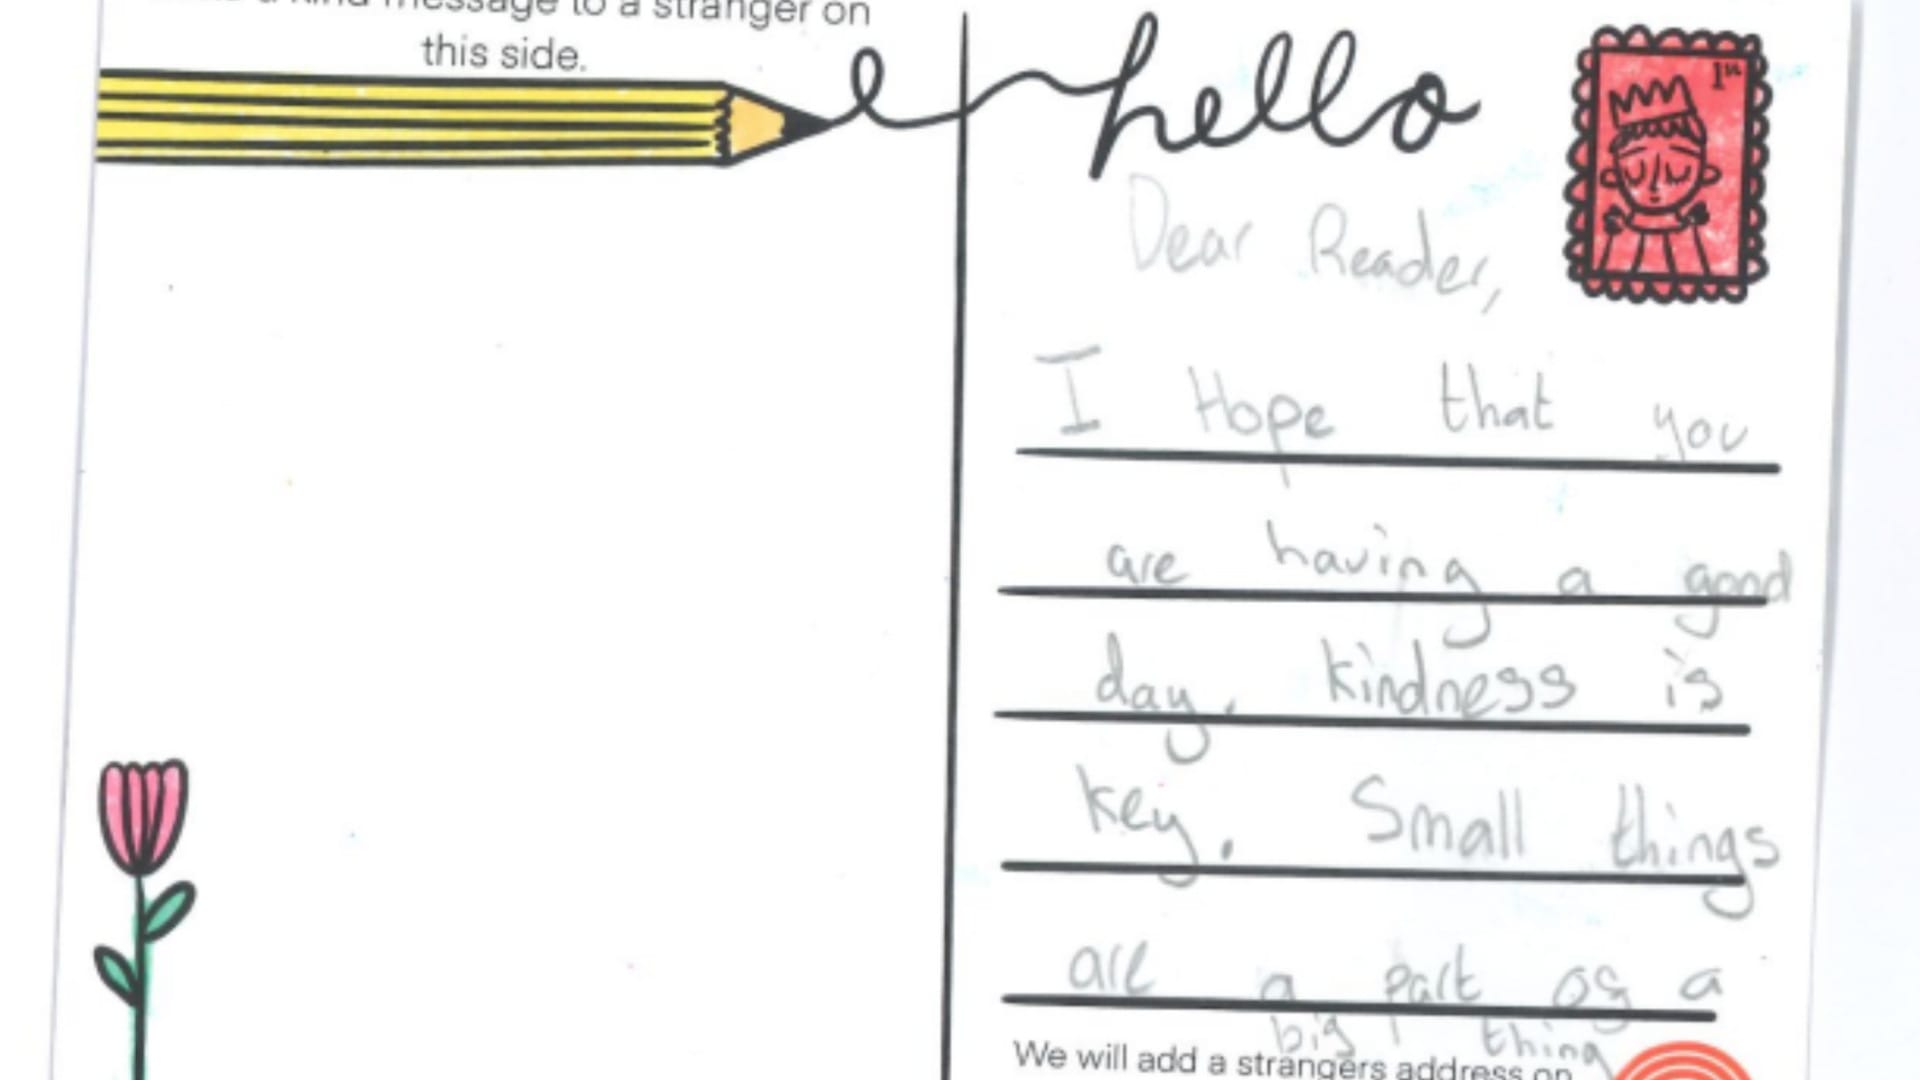 a kind message to a stranger on
this side.
hello
1st
Dear Reader,
I Hope that you
are having a good
day. kindness is
key. Small things
are a part of a
big thing
We will add a strangers address on